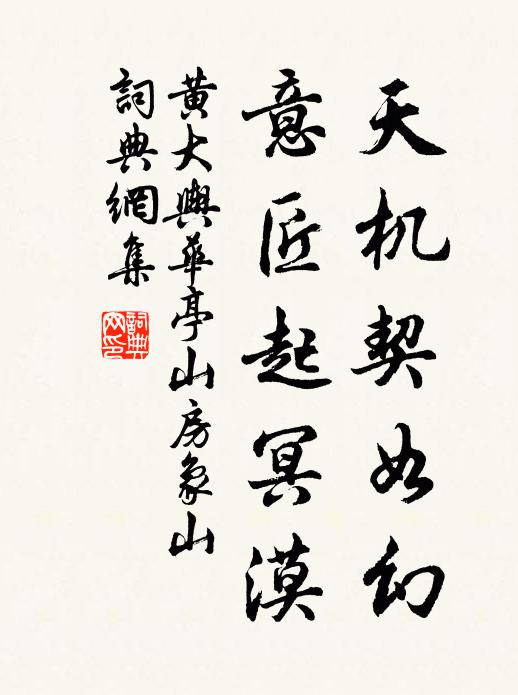 天机契如幻
意匠起冥漠
黄大興華亭山房象山
詞典網集
詞典網印